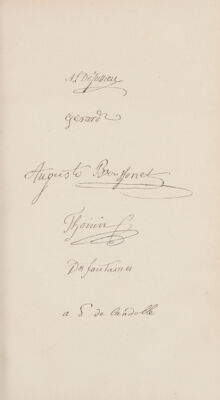 A. L. DeJussieu
Gerard
Auguste Broussonet
Thouin
Desfontaines
a p de Candolle